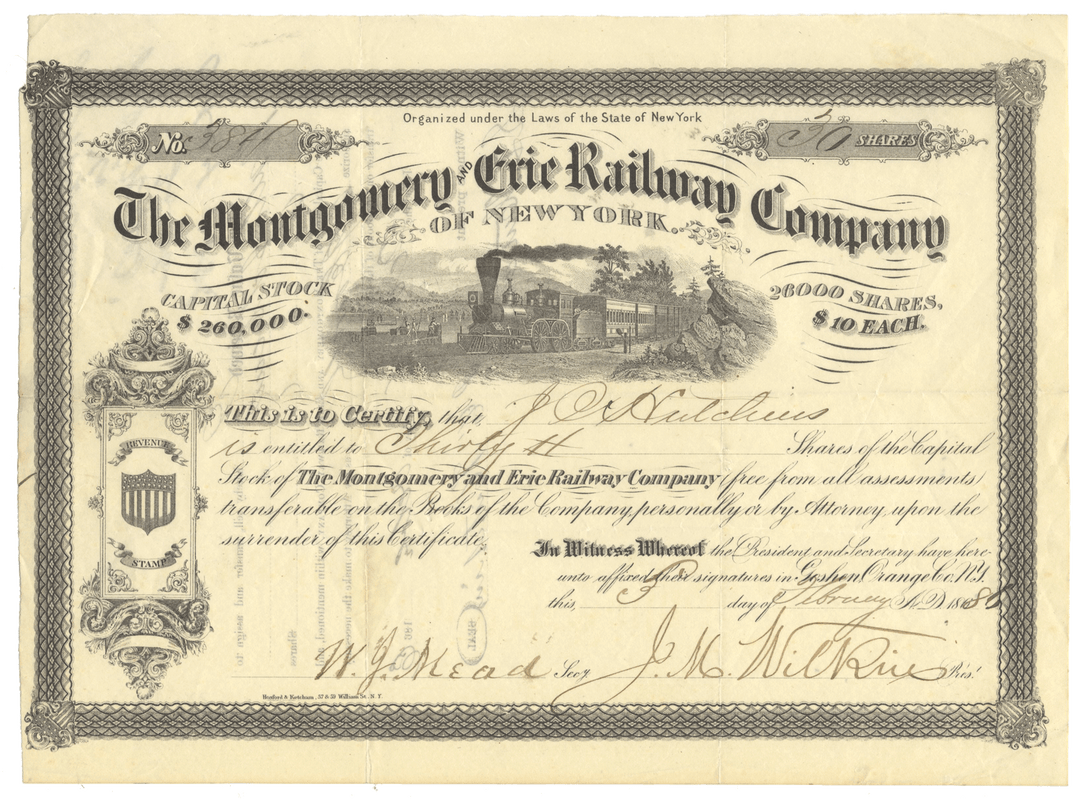 Organized under the Laws of the State of New York
No. 384
30 SHARES
The Montgomery AND Erie Railway Company
OF NEW YORK.
CAPITAL STOCK
$ 260,000.
26000 SHARES,
$ 10 EACH.
This is to Certify, that J O Hutchins
is entitled to Thirty Shares of the Capital
Stock of The Montgomery and Erie Railway Company (free from all assessments)
transferable on the Books of the Company, personally or by Attorney, upon the
surrender of this Certificate.
REVENUE
STAMP
In Witness Whereof the President and Secretary have here-
unto affixed their signatures in Goshen, Orange Co. N.Y.
this, 3 day of February A.D. 18
W. J. Mead Secy J. M. Wilkin Pres.t
Hosford & Ketcham, 57 & 59 William St. N.Y.